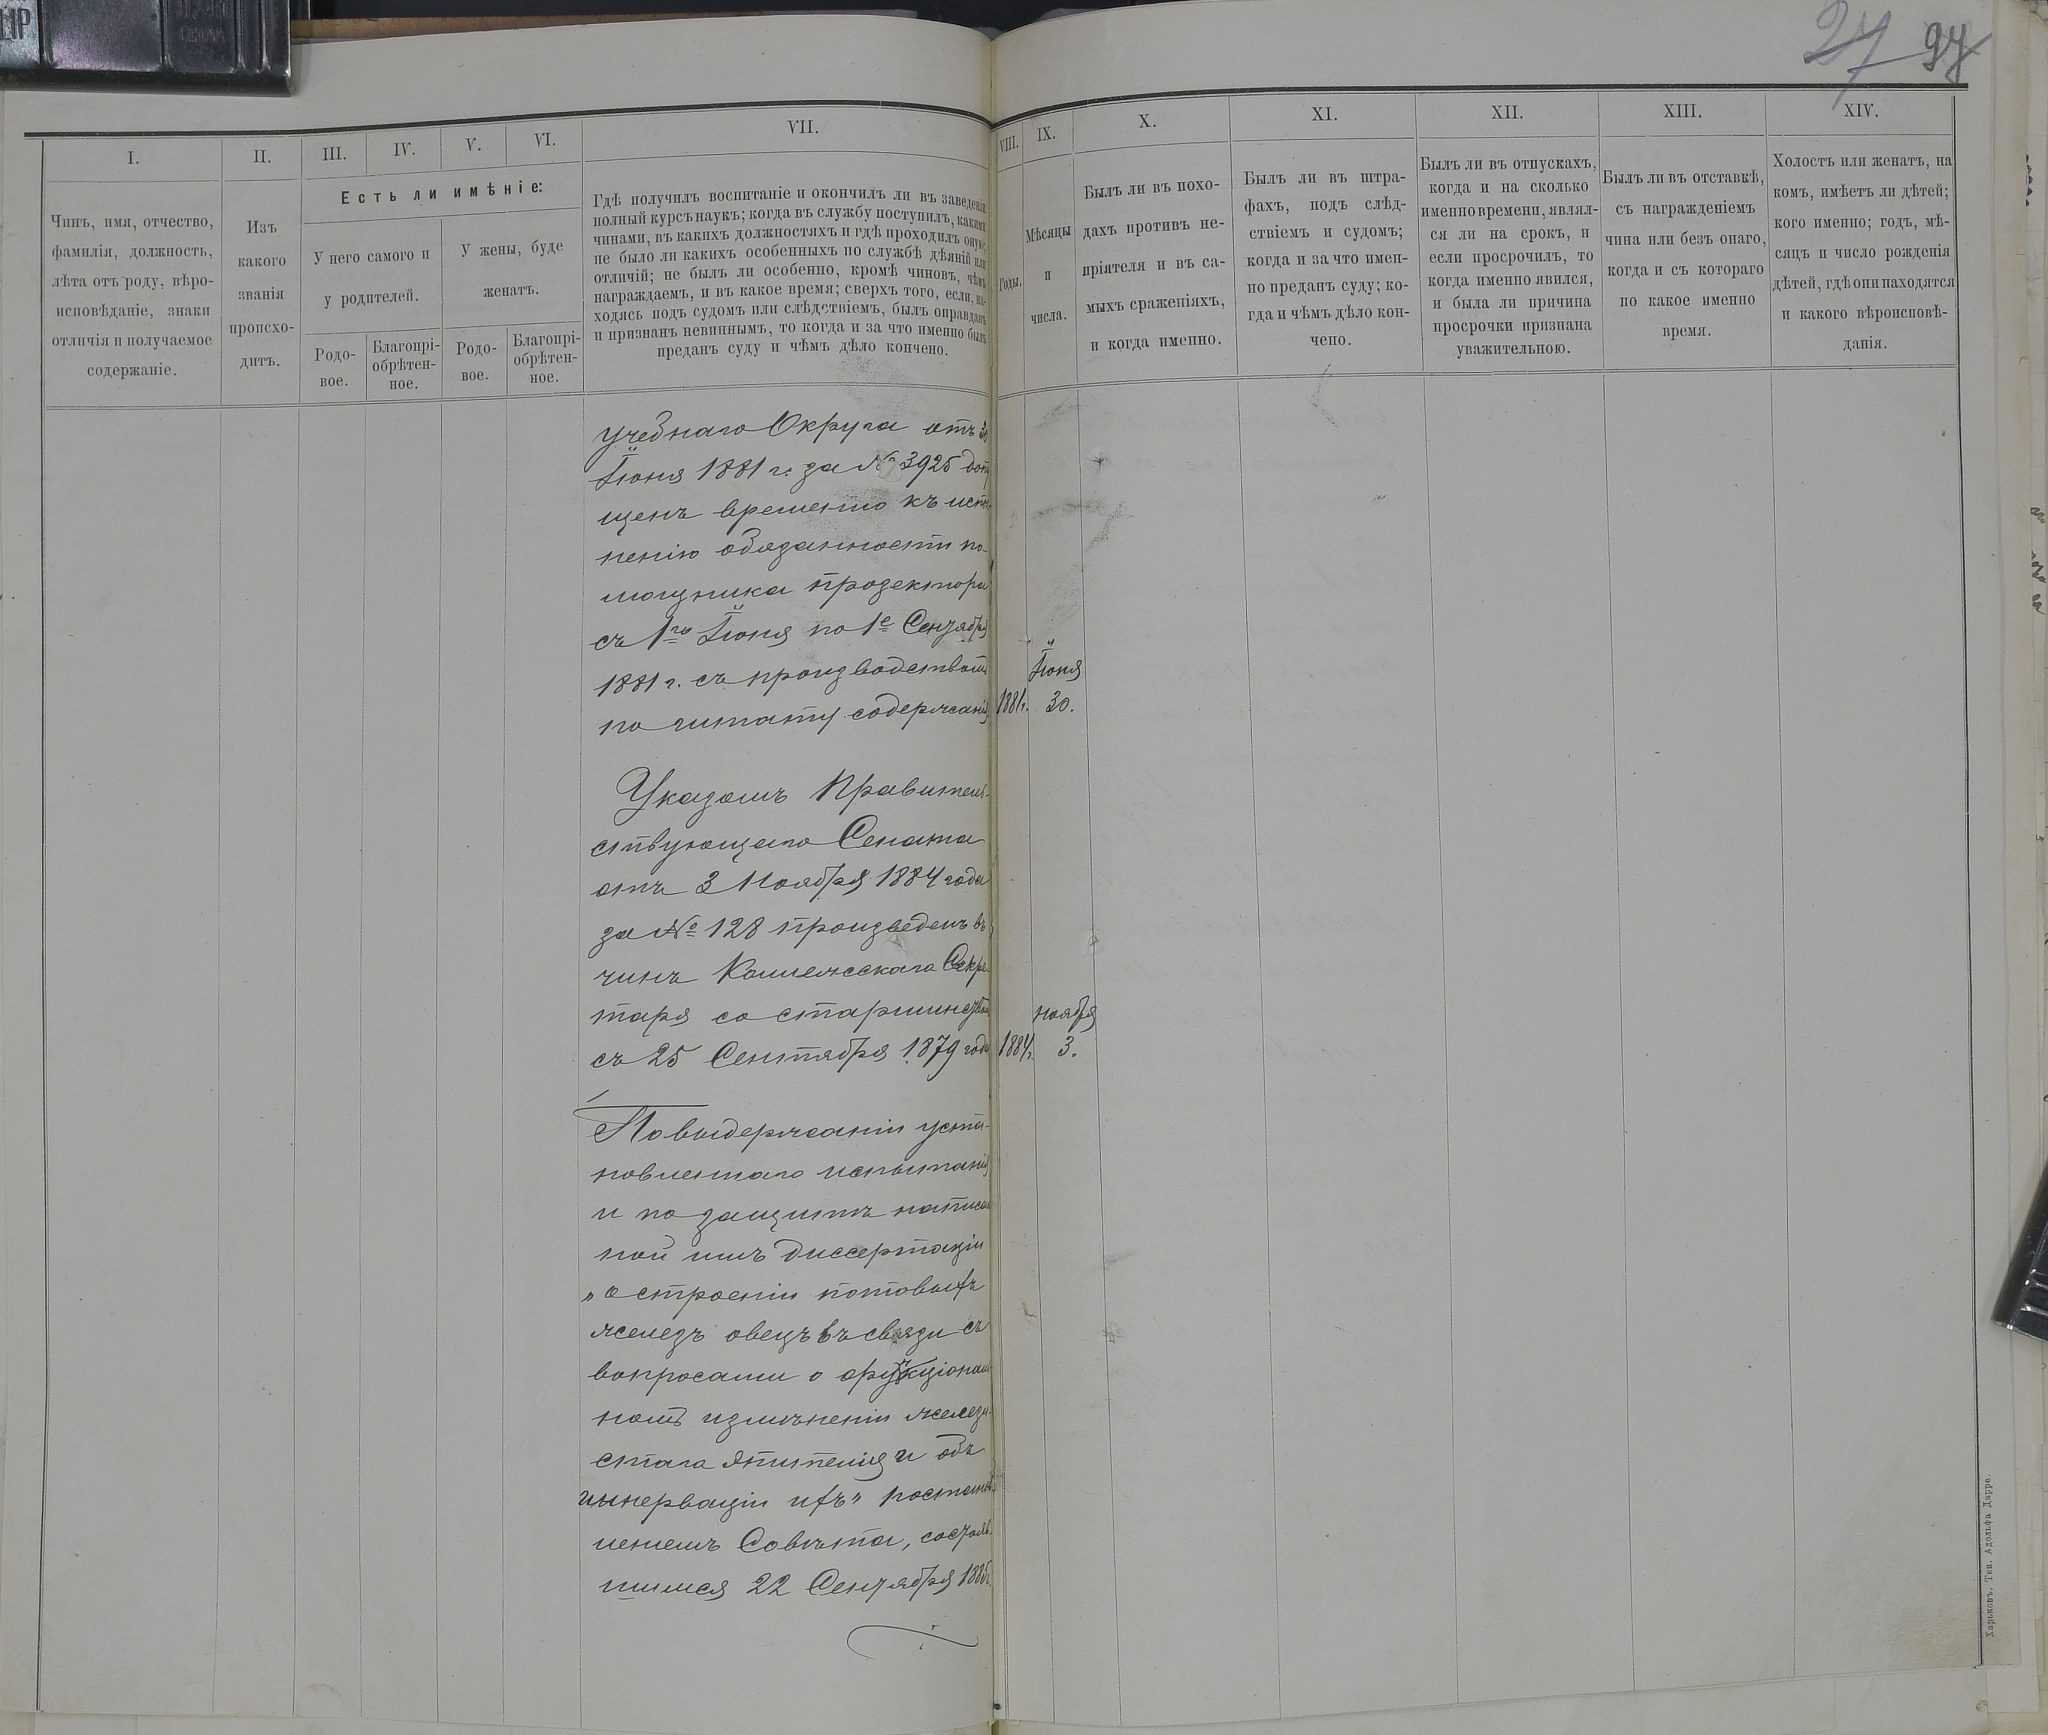 27 97
I.
II.
III.
IV.
V.
VI.
VII.
VIII.
IX.
X.
XI.
XII.
XIII.
XIV.
Чинъ, имя, отчество,
фамилія, должность,
лѣта отъ роду, вѣро-
исповѣданіе, знаки
отличія и получаемое
содержаніе.
Изъ
какого
званія
происхо-
дитъ.
Есть ли имѣніе:
У него самого и
у родителей.
У жены, буде
женатъ.
Родо-
вое.
Благопрі-
обрѣтен-
ное.
Родо-
вое.
Благопрі-
обрѣтен-
ное.
Гдѣ получилъ воспитаніе и окончилъ ли въ заведеніи
полный курсъ наукъ; когда въ службу поступилъ, какими
чинами, въ какихъ должностяхъ и гдѣ проходилъ оную;
не было ли какихъ особенныхъ по службѣ дѣяній или
отличій; не былъ ли особенно, кромѣ чиновъ, чѣмъ
награждаемъ, и въ какое время; сверхъ того, если, на-
ходясь подъ судомъ или слѣдствіемъ, былъ оправданъ
и признанъ невиннымъ, то когда и за что именно былъ
преданъ суду и чѣмъ дѣло кончено.
Годы.
Мѣсяцы
и
числа.
Былъ ли въ похо-
дахъ противъ не-
пріятеля и въ са-
мыхъ сраженіяхъ,
и когда именно.
Былъ ли въ штра-
фахъ, подъ слѣд-
ствіемъ и судомъ;
когда и за что имен-
но преданъ суду; ко-
гда и чѣмъ дѣло кон-
чено.
Былъ ли въ отпускахъ,
когда и на сколько
именно времени, являл-
ся ли на срокъ, и
если просрочилъ, то
когда именно явился,
и была ли причина
просрочки признана
уважительною.
Былъ ли въ отставкѣ,
съ награжденіемъ
чина или безъ онаго,
когда и съ котораго
по какое именно
время.
Холостъ или женатъ, на
комъ, имѣетъ ли дѣтей;
кого именно; годъ, мѣ-
сяцъ и число рожденія
дѣтей, гдѣ они находятся
и какого вѣроисповѣ-
данія.
учебнаго Округа отъ 30
Іюня 1881 г. за № 3925 допу
щенъ временно къ испол
ненію обязанности по-
мощника прозектора
съ 1го Іюня по 1е Сентября
1881 г. съ производствомъ
по штату содержанія
1881г.
Іюня
30.
Указомъ Правитель-
ствующаго Сената
отъ 3 Ноября 1884 года
за № 128 произведенъ въ
чинъ Коллежскаго Секре-
таря со старшинствомъ
съ 25 Сентября 1879 года
1884г.
ноября
3.
По выдержаніи уста-
новленнаго испытанія
и по защитѣ написан
ной имъ диссертаціи
„о строеніи потовыхъ
железъ овецъ въ связи съ
вопросами о функціональ
номъ измѣненіи желези-
стаго эпителія и объ
иннерваціи ихъ" постанов
леніемъ Совѣта, состояв-
шимся 22 Сентября
Харьковъ. Тип. Адольфа Дарре.